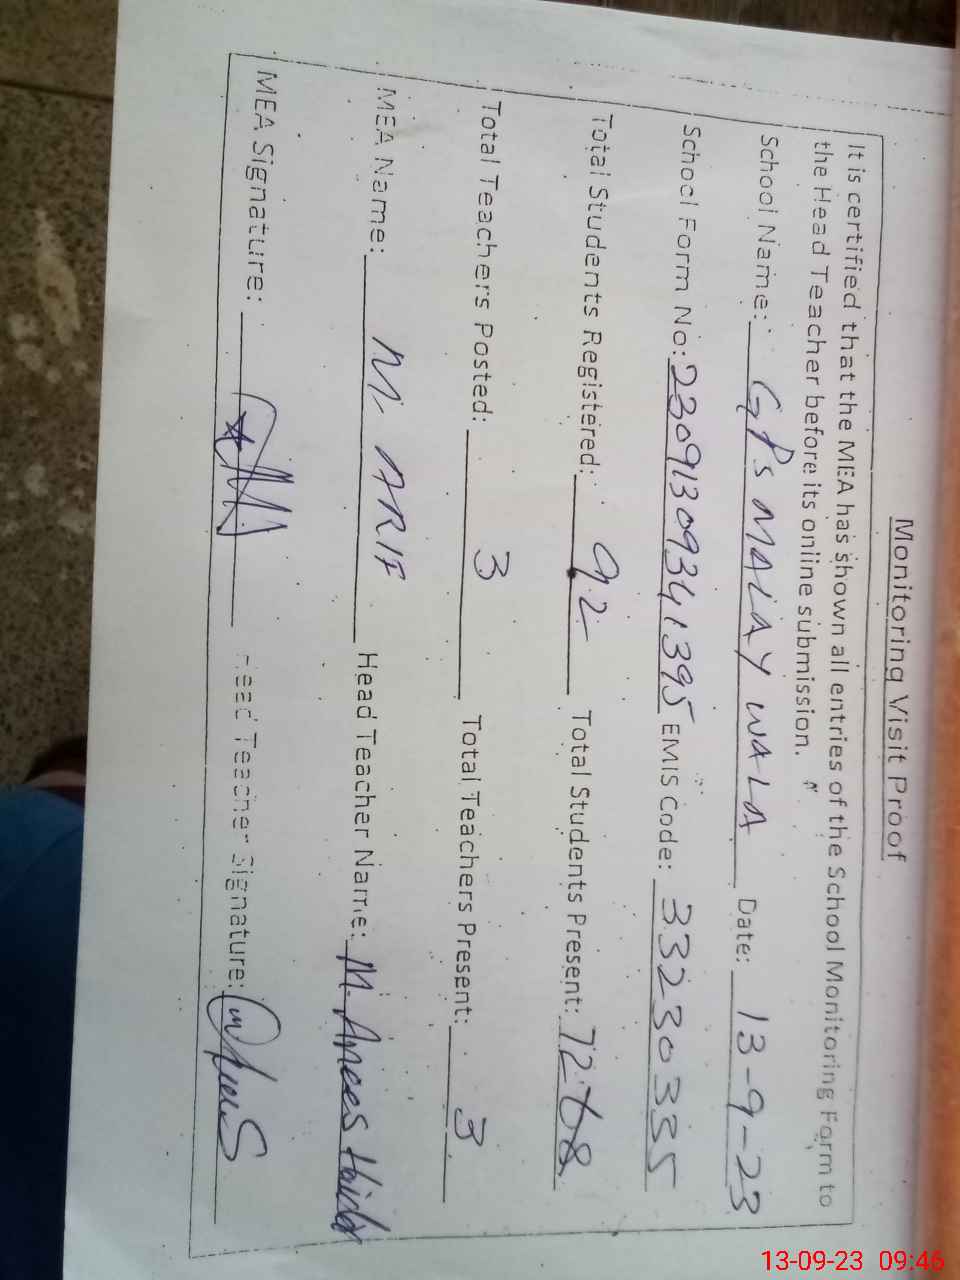 Monitoring Visit Proof
It is certified that the MEA has shown all entries of the School Monitoring Form to
the Head Teacher before its online submission.
School Name: GPS MALAY WALA Date: 13-9-23
School Form No: 23091309341395 EMIS Code: 33230335
Total Students Registered: 92 Total Students Present: 72
Total Teachers Posted: 3 Total Teachers Present: 3
MEA Name: M. ARIF Head Teacher Name: M. Anees Haider
MEA Signature: Head Teacher Signature:
13-09-23 09:46